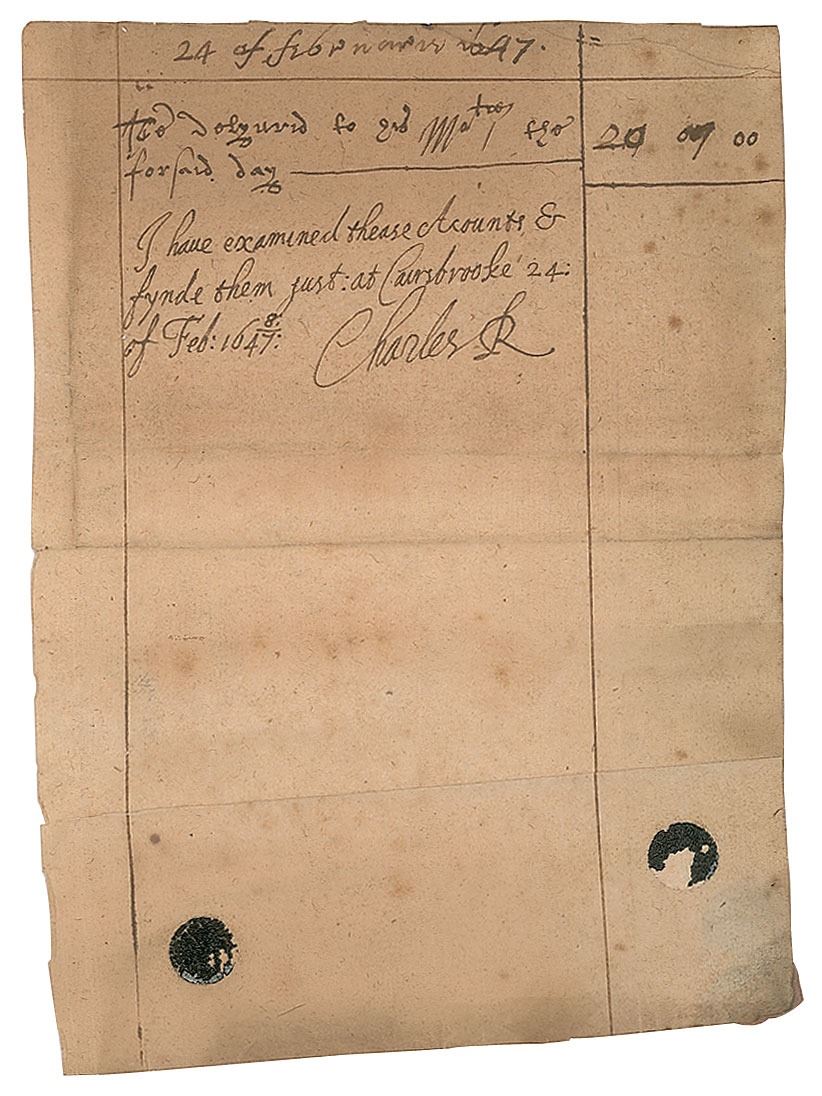 24 of februarie 1647.
delyurid to his Ma^ties the 20 07 00
forsaid day
I haue examined thease Acounts &
fynde them just: at Cairsbrooke 24:
of Feb: 1647/8:
Charles R